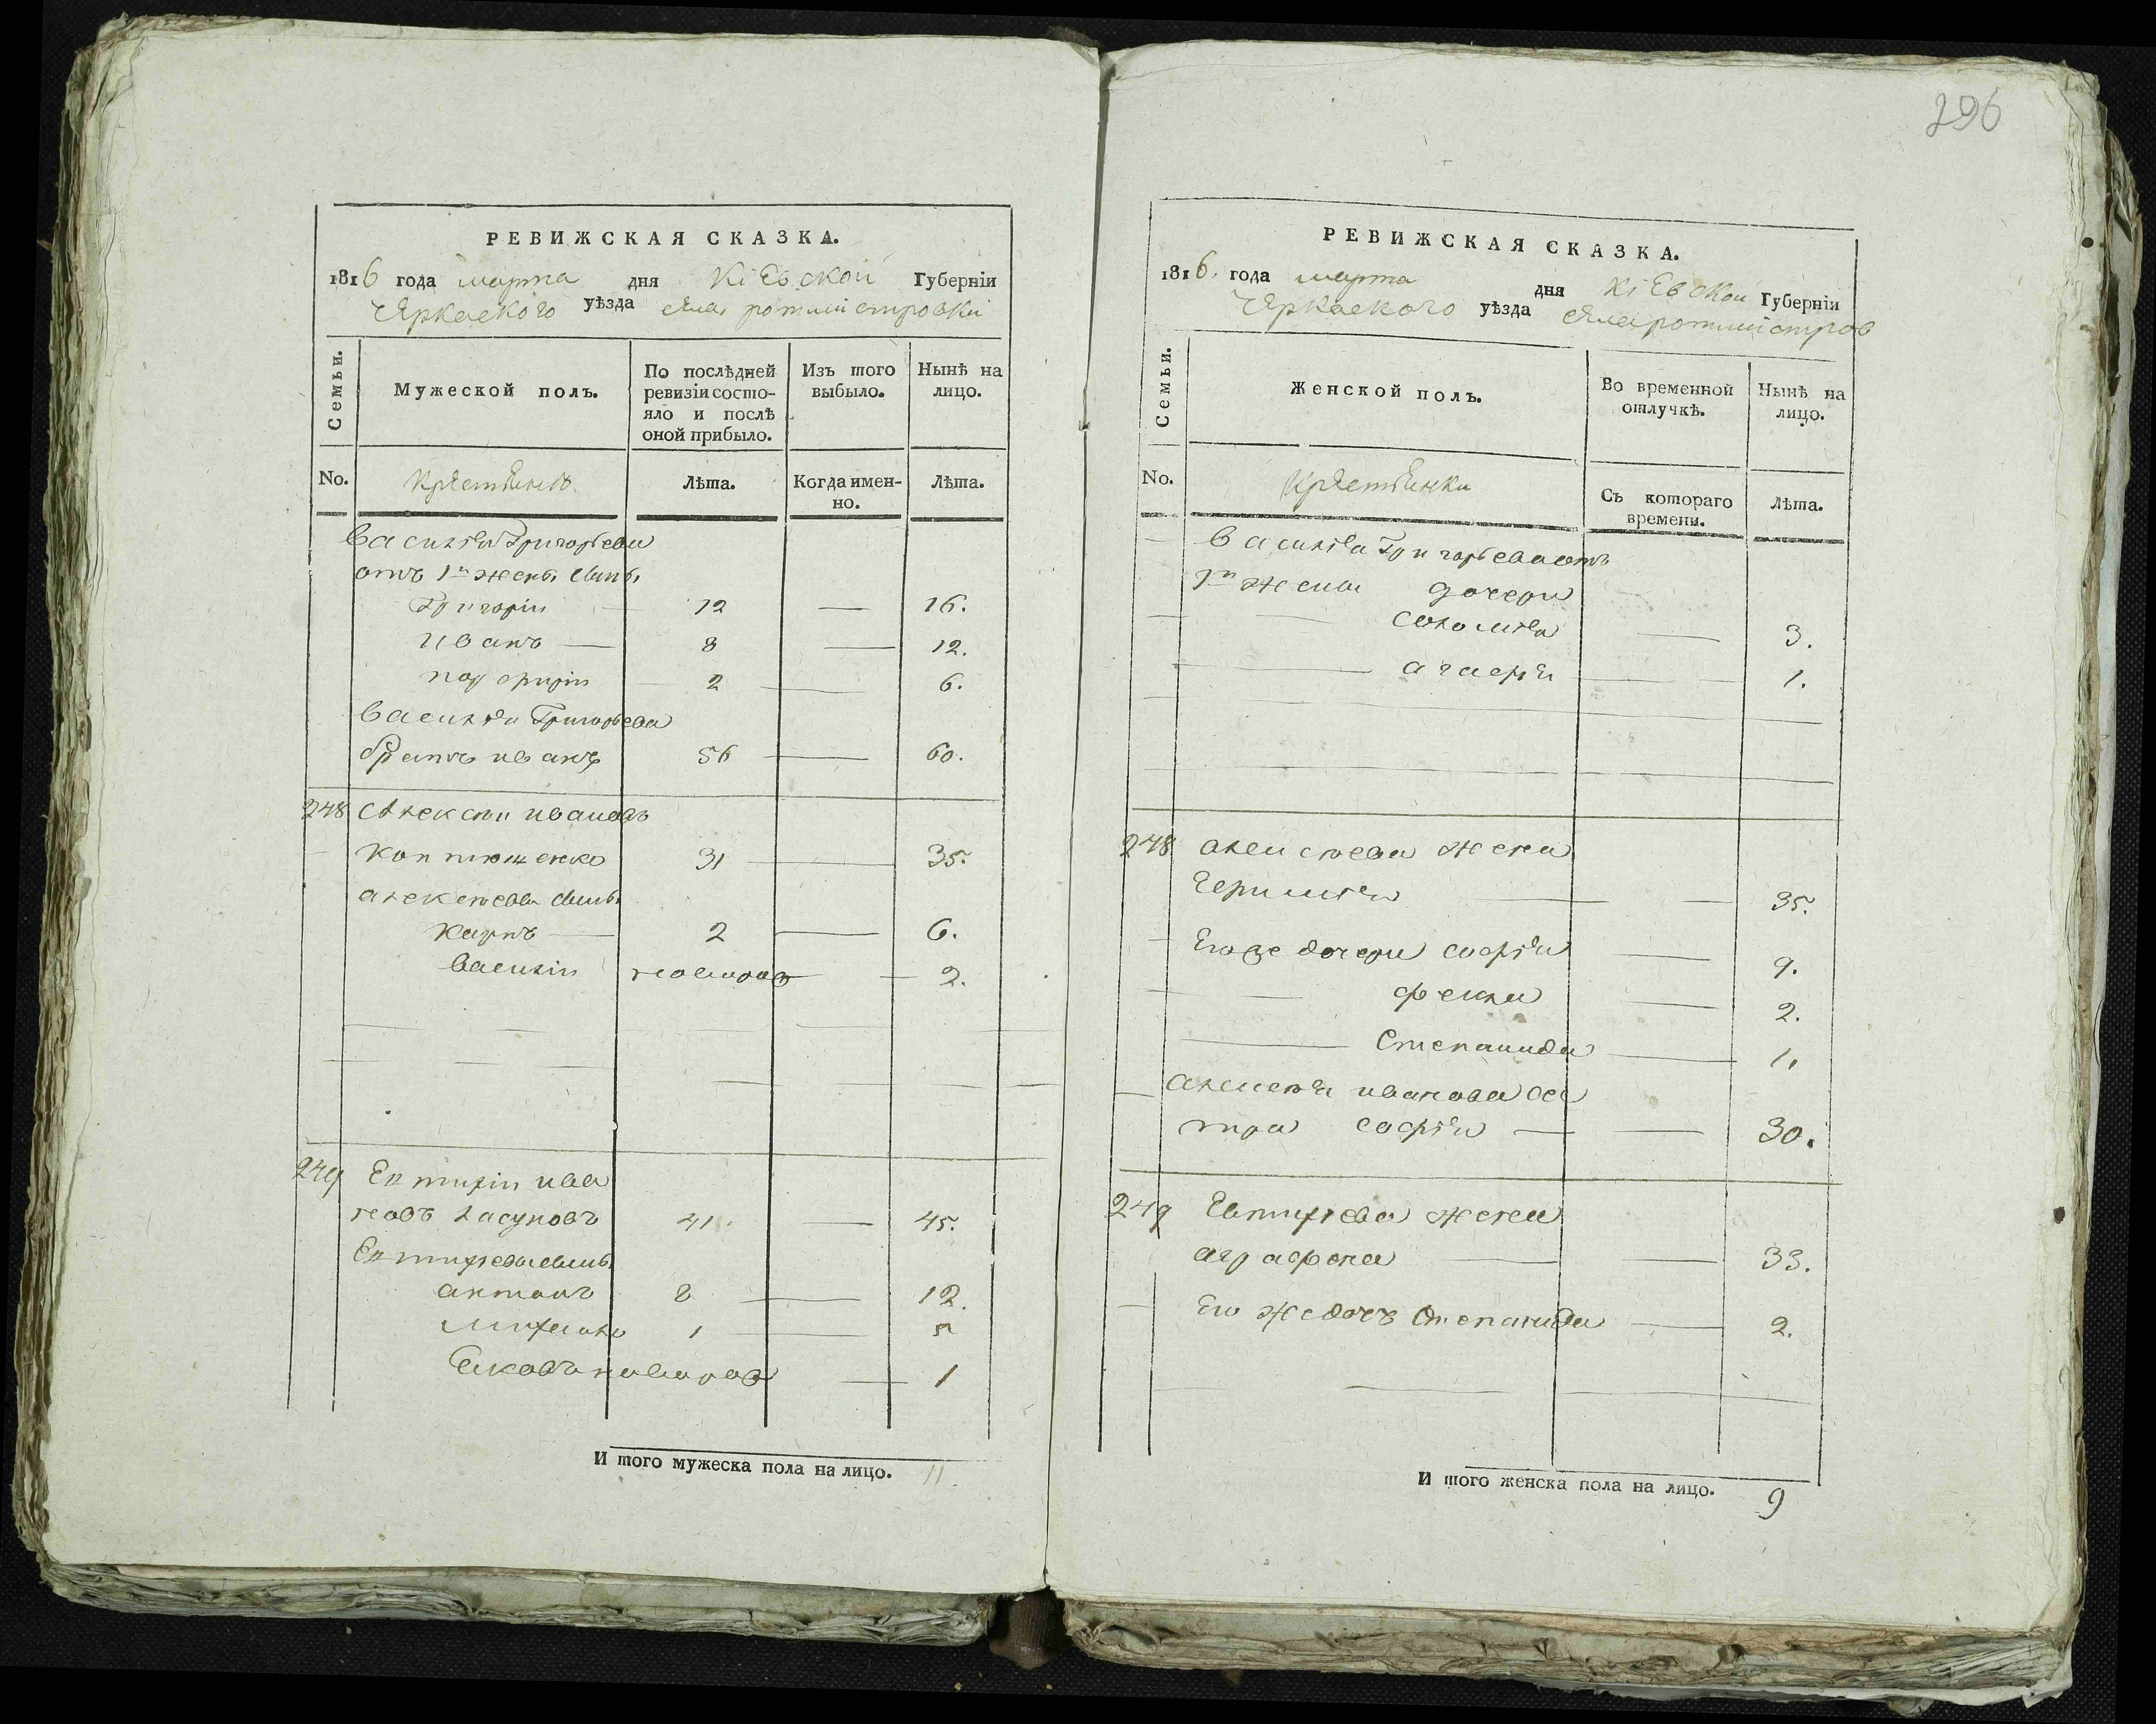 РЕВИЖСКАЯ СКАЗКА.
1816 года марта дня Кіевской Губерніи
Черкаского уѣзда села ротмистровки
Семьи.
Мужеской полъ.
По послѣдней ревизіи состо-
яло и послѣ
оной прибыло.
Изъ того выбыло.
Нынѣ на лицо.
No.
Лѣта.
Когда имен-
но.
Лѣта.
василія Григорьева
отъ 1й жены сыны
Григорій 12 — 16.
иванъ — 8 — 12.
порфирій 2 — 6.
василія Григорьева
братъ иванъ 56 — 60.
248 алексѣй ивановъ
31 — 35.
алексѣева сыны
карпъ — 2 — 6.
василій новорож — 2.
249 Евтихій ива
новъ 41 — 45.
Евтихіева сыны
антонъ 8 — 12.
михаило 1 — 5
новорож — 1
И того мужеска пола на лицо. 11.
296
РЕВИЖСКАЯ СКАЗКА.
1816. года марта дня Кіевской Губерніи
Черкаского уѣзда села ротмистров
Семьи.
Женской полъ.
Во временной отлучкѣ.
Нынѣ на лицо.
No.
Съ котораго времени.
Лѣта.
василія Григорьева отъ
1й жены дочери
соломія — 3.
агафія — 1.
248 жена
— 35.
Его же дочери софія — 9.
фекла — 2.
Степанида — 1.
иванова сес
тра софія — 30.
249 Евтихіева жена
аграфена — 33.
Его же дочь Степанида — 2.
И того женска пола на лицо. 9